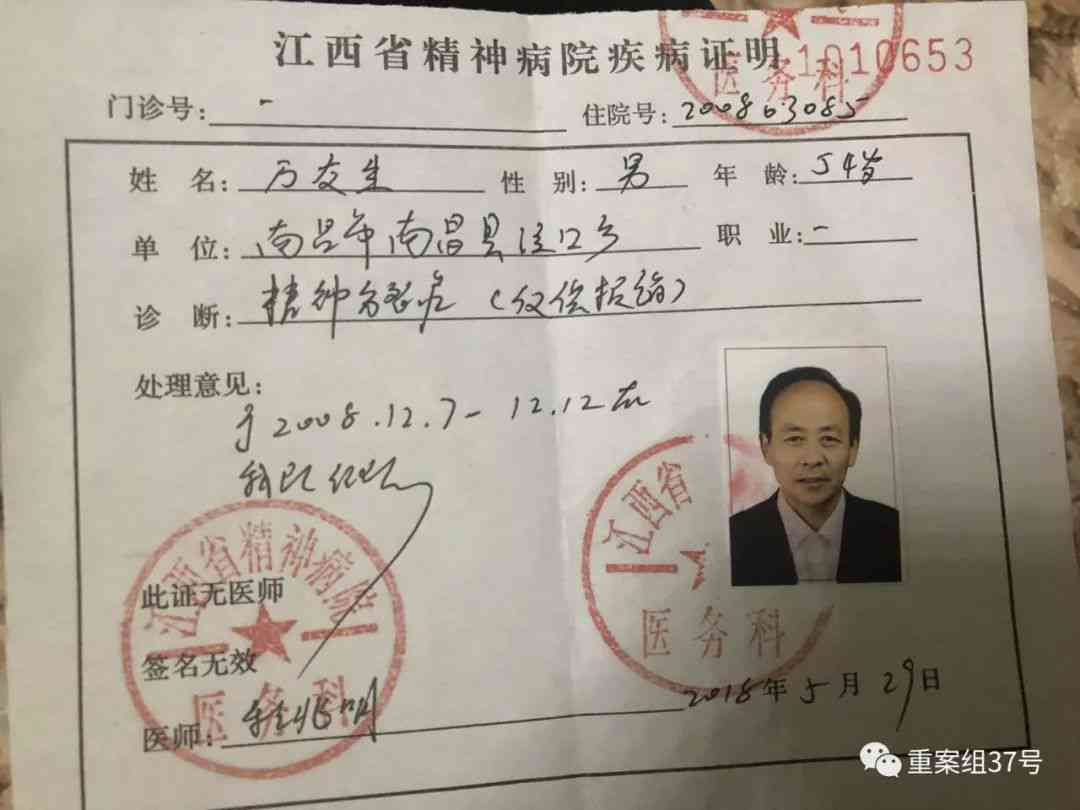 江西省精神病院疾病证明
1010653
医务科
门诊号: - 住院号: 200863085
姓 名: 万友生 性 别: 男 年 龄: 54岁
单 位: 南昌市南昌县泾口乡 职 业: -
诊 断: 精神分裂症（仅供报销）
处理意见:
于2008.12.7-12.12在
我院住院
江西省精神病院
医务科
江西省
医务科
此证无医师
签名无效
医师:
2018年5月29日
重案组37号